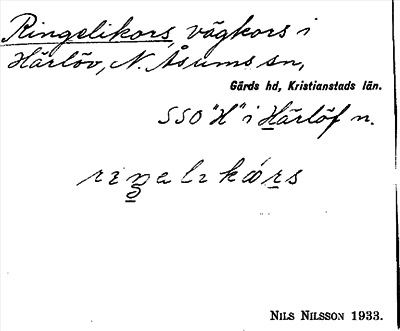 Ringelikors, vägkors i
Härlöv, N. Åsums sn,
Gärds hd, Kristianstads län.
SSO "H" i Härlöf n.
riŋelikǿrs
NILS NILSSON 1933.